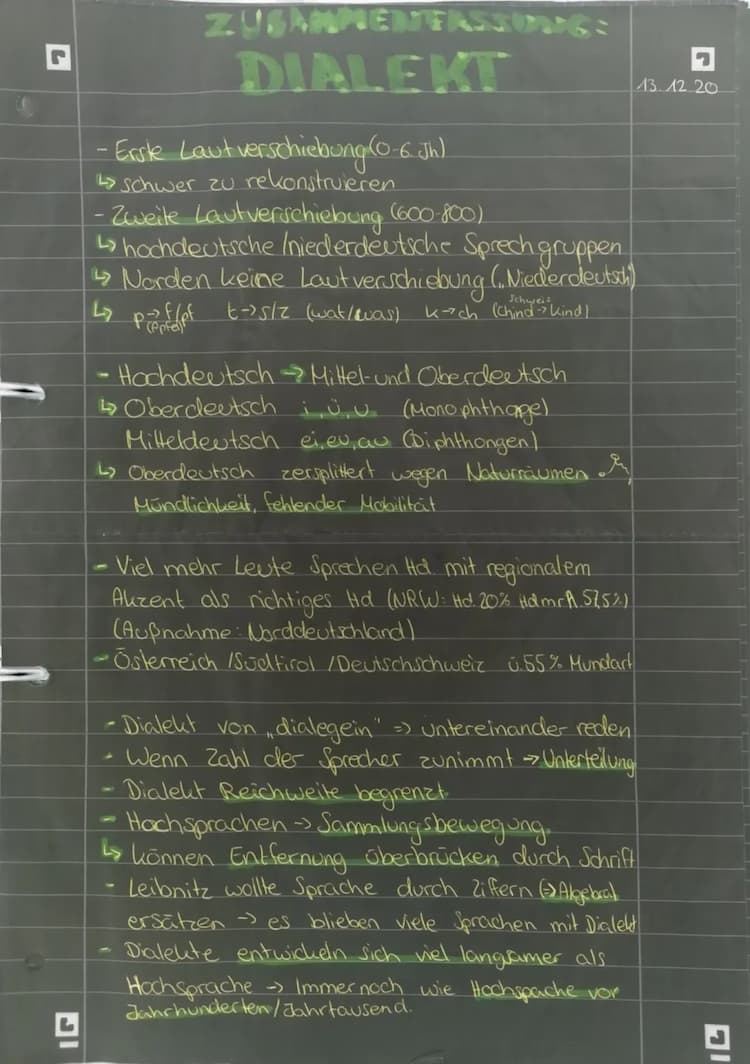 ZUSAMMENFASSUNG:
DIALEKT
13.12.20
- Erste Lautverschiebung (0-6. Jh)
↳ schwer zu rekonstruieren
- Zweite Lautverschiebung (600-800)
↳ hochdeutsche/niederdeutsche Sprechgruppen
↳ Norden keine Lautverschiebung („Niederdeutsch)
↳ p→f/pf t→s/z (wat/was) k→ch (Chind→Kind)
(Apfel) Schweiz
- Hochdeutsch → Mittel- und Oberdeutsch
↳ Oberdeutsch i, ü, u (Monophthonge)
Mitteldeutsch ei, eu, au (Diphthongen)
↳ Oberdeutsch zersplittert wegen Naturräumen,
Mündlichkeit, fehlender Mobilität
- Viel mehr Leute Sprechen Hd. mit regionalem
Akzent als richtiges Hd (NRW: Hd. 20% HdmrA. 57,5%)
(Außnahme: Norddeutschland)
- Österreich /Südtirol /Deutschschweiz ü. 55% Mundart
- Dialekt von „dialegein" => untereinander reden
- Wenn Zahl der Sprecher zunimmt → Unterteilung
- Dialekt Reichweite begrenzt
- Hochsprachen → Sammlungsbewegung
↳ können Entfernung überbrücken durch Schrift
- Leibnitz wollte Sprache durch Zifern (→Algebra)
ersätzen → es blieben viele Sprachen mit Dialekt
- Dialekte entwickeln sich viel langsamer als
Hochsprache → Immer noch wie Hochspache vor
Jahrhunderten/Jahrtausend.